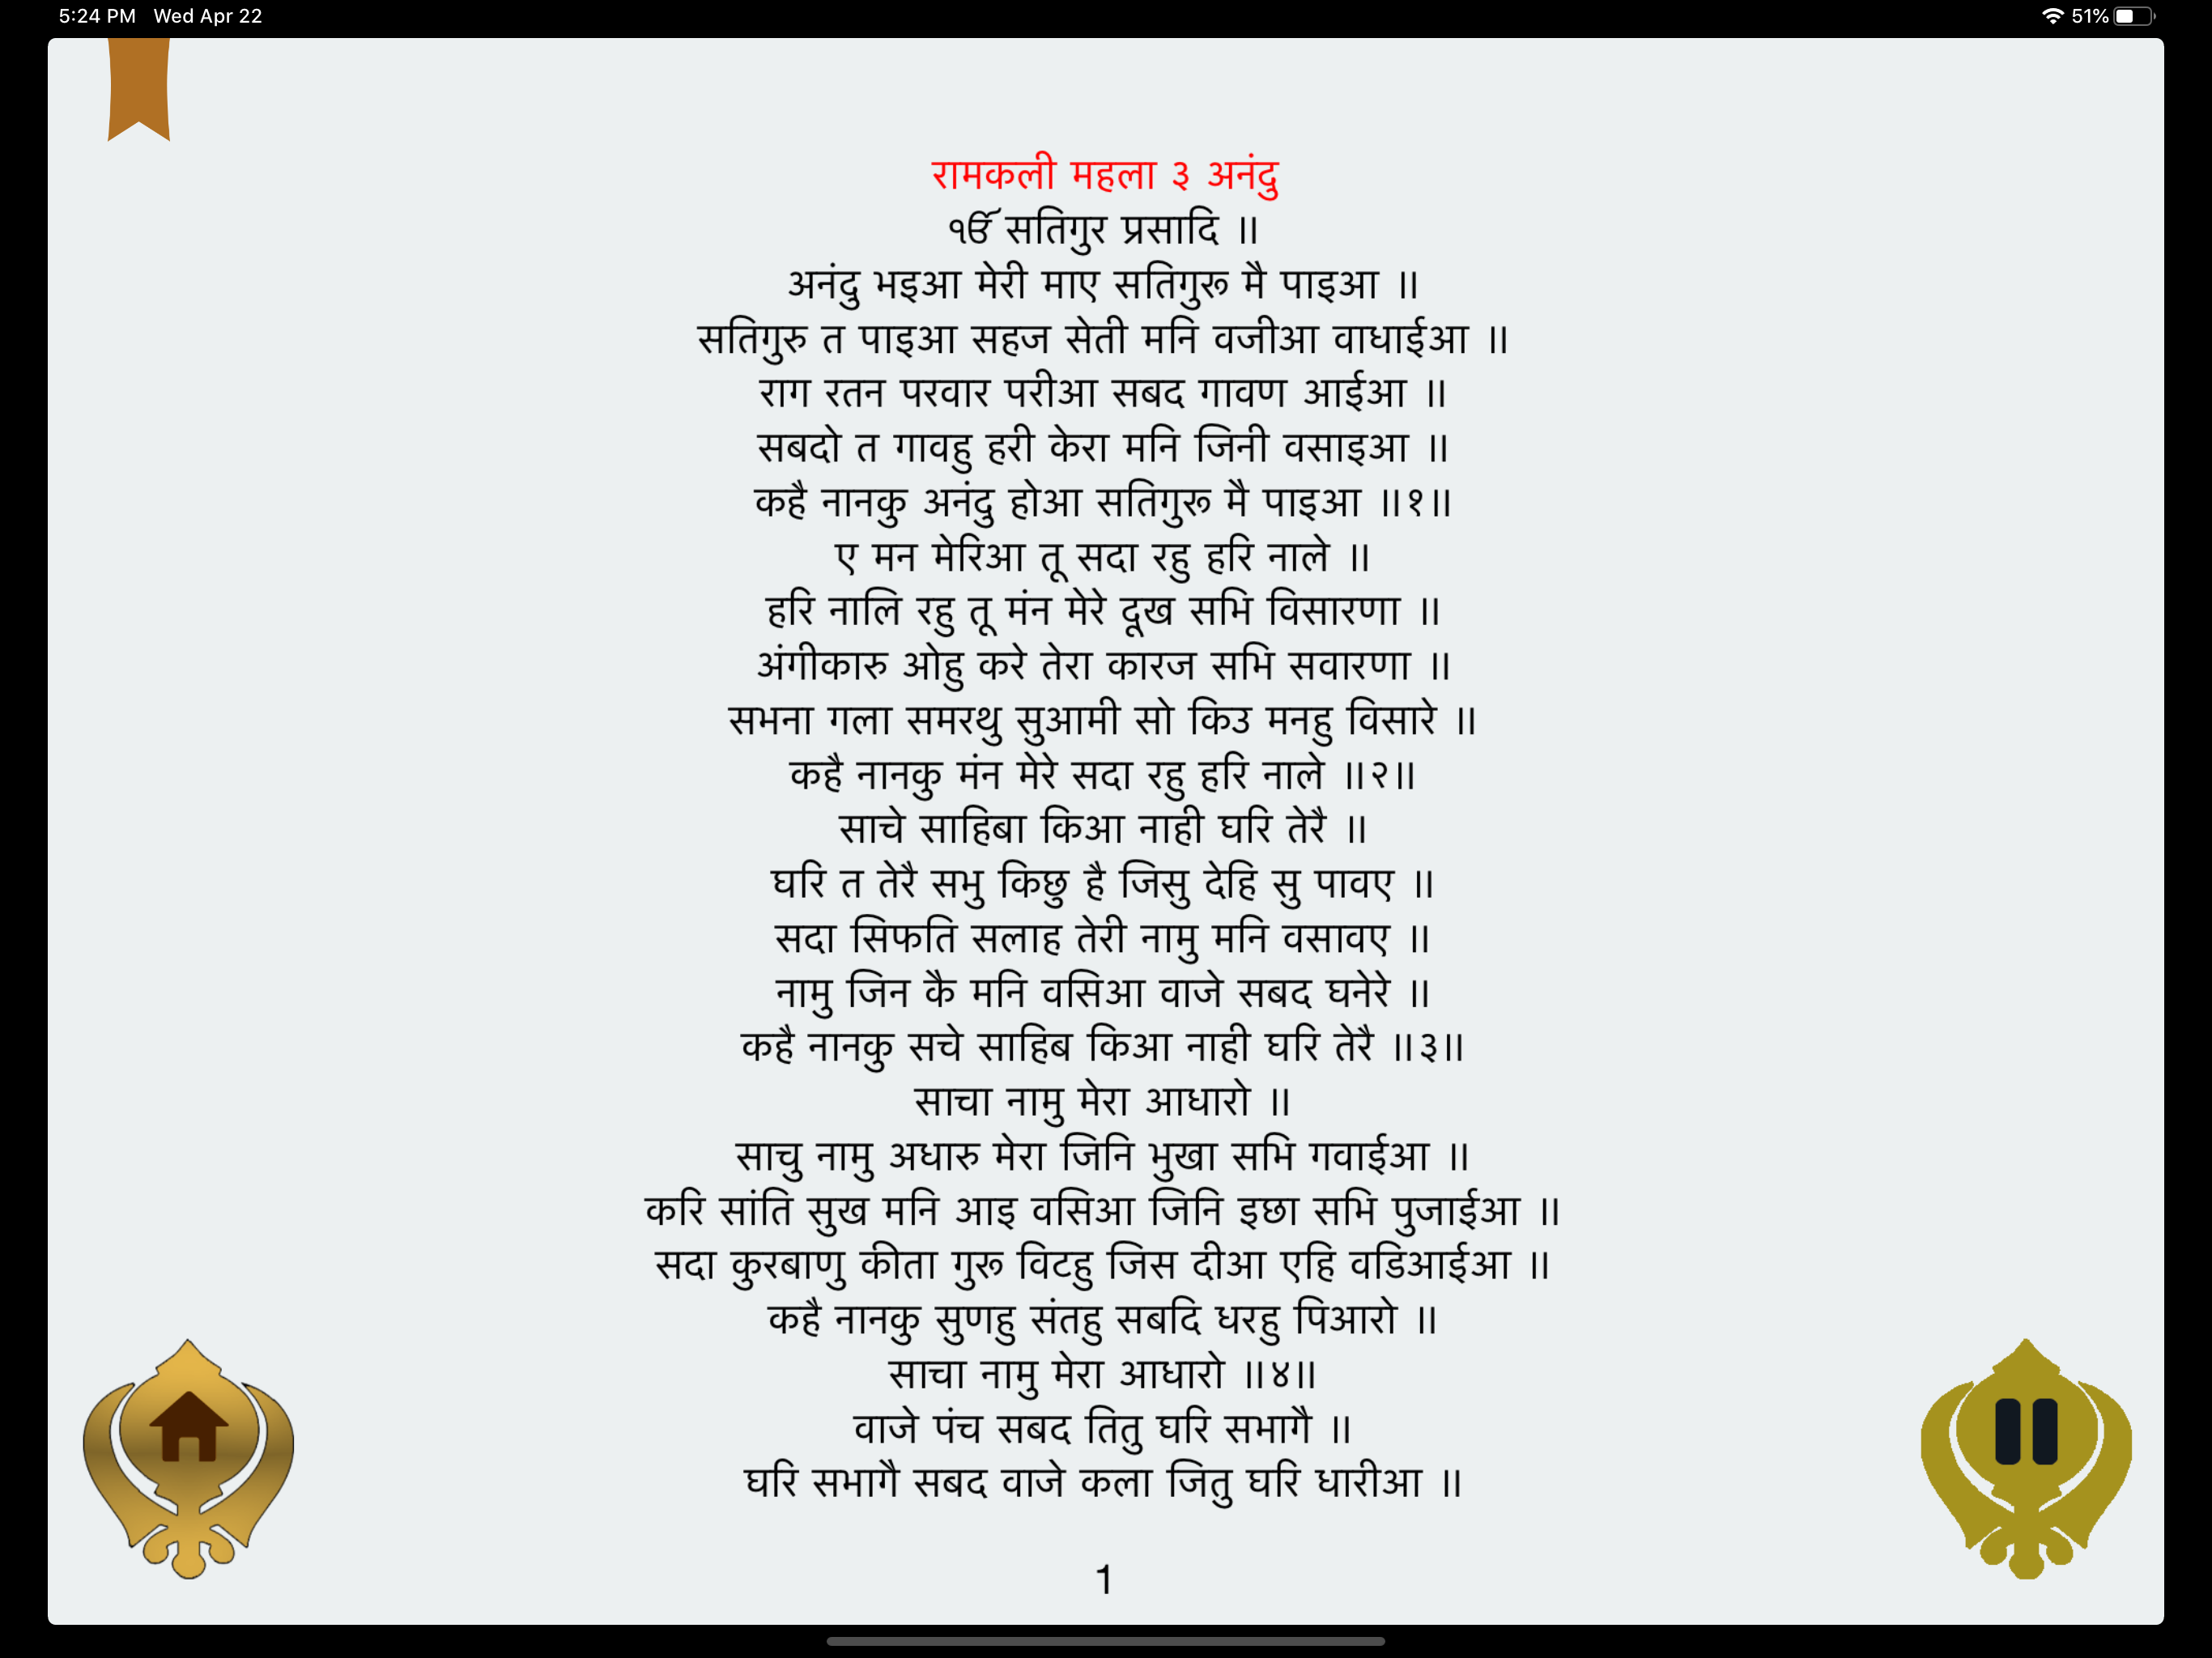 5:24 PM Wed Apr 22 51%
रामकली महला ३ अनंदु
ੴ सतिगुर प्रसादि ॥
अनंदु भइआ मेरी माए सतिगुरू मै पाइआ ॥
सतिगुरु त पाइआ सहज सेती मनि वजीआ वाधाईआ ॥
राग रतन परवार परीआ सबद गावण आईआ ॥
सबदो त गावहु हरी केरा मनि जिनी वसाइआ ॥
कहै नानकु अनंदु होआ सतिगुरू मै पाइआ ॥१॥
ए मन मेरिआ तू सदा रहु हरि नाले ॥
हरि नालि रहु तू मंन मेरे दूख सभि विसारणा ॥
अंगीकारु ओहु करे तेरा कारज सभि सवारणा ॥
सभना गला समरथु सुआमी सो किउ मनहु विसारे ॥
कहै नानकु मंन मेरे सदा रहु हरि नाले ॥२॥
साचे साहिबा किआ नाही घरि तेरै ॥
घरि त तेरै सभु किछु है जिसु देहि सु पावए ॥
सदा सिफति सलाह तेरी नामु मनि वसावए ॥
नामु जिन कै मनि वसिआ वाजे सबद घनेरे ॥
कहै नानकु सचे साहिब किआ नाही घरि तेरै ॥३॥
साचा नामु मेरा आधारो ॥
साचु नामु अधारु मेरा जिनि भुखा सभि गवाईआ ॥
करि सांति सुख मनि आइ वसिआ जिनि इछा सभि पुजाईआ ॥
सदा कुरबाणु कीता गुरू विटहु जिस दीआ एहि वडिआईआ ॥
कहै नानकु सुणहु संतहु सबदि धरहु पिआरो ॥
साचा नामु मेरा आधारो ॥४॥
वाजे पंच सबद तितु घरि सभागै ॥
घरि सभागै सबद वाजे कला जितु घरि धारीआ ॥
1